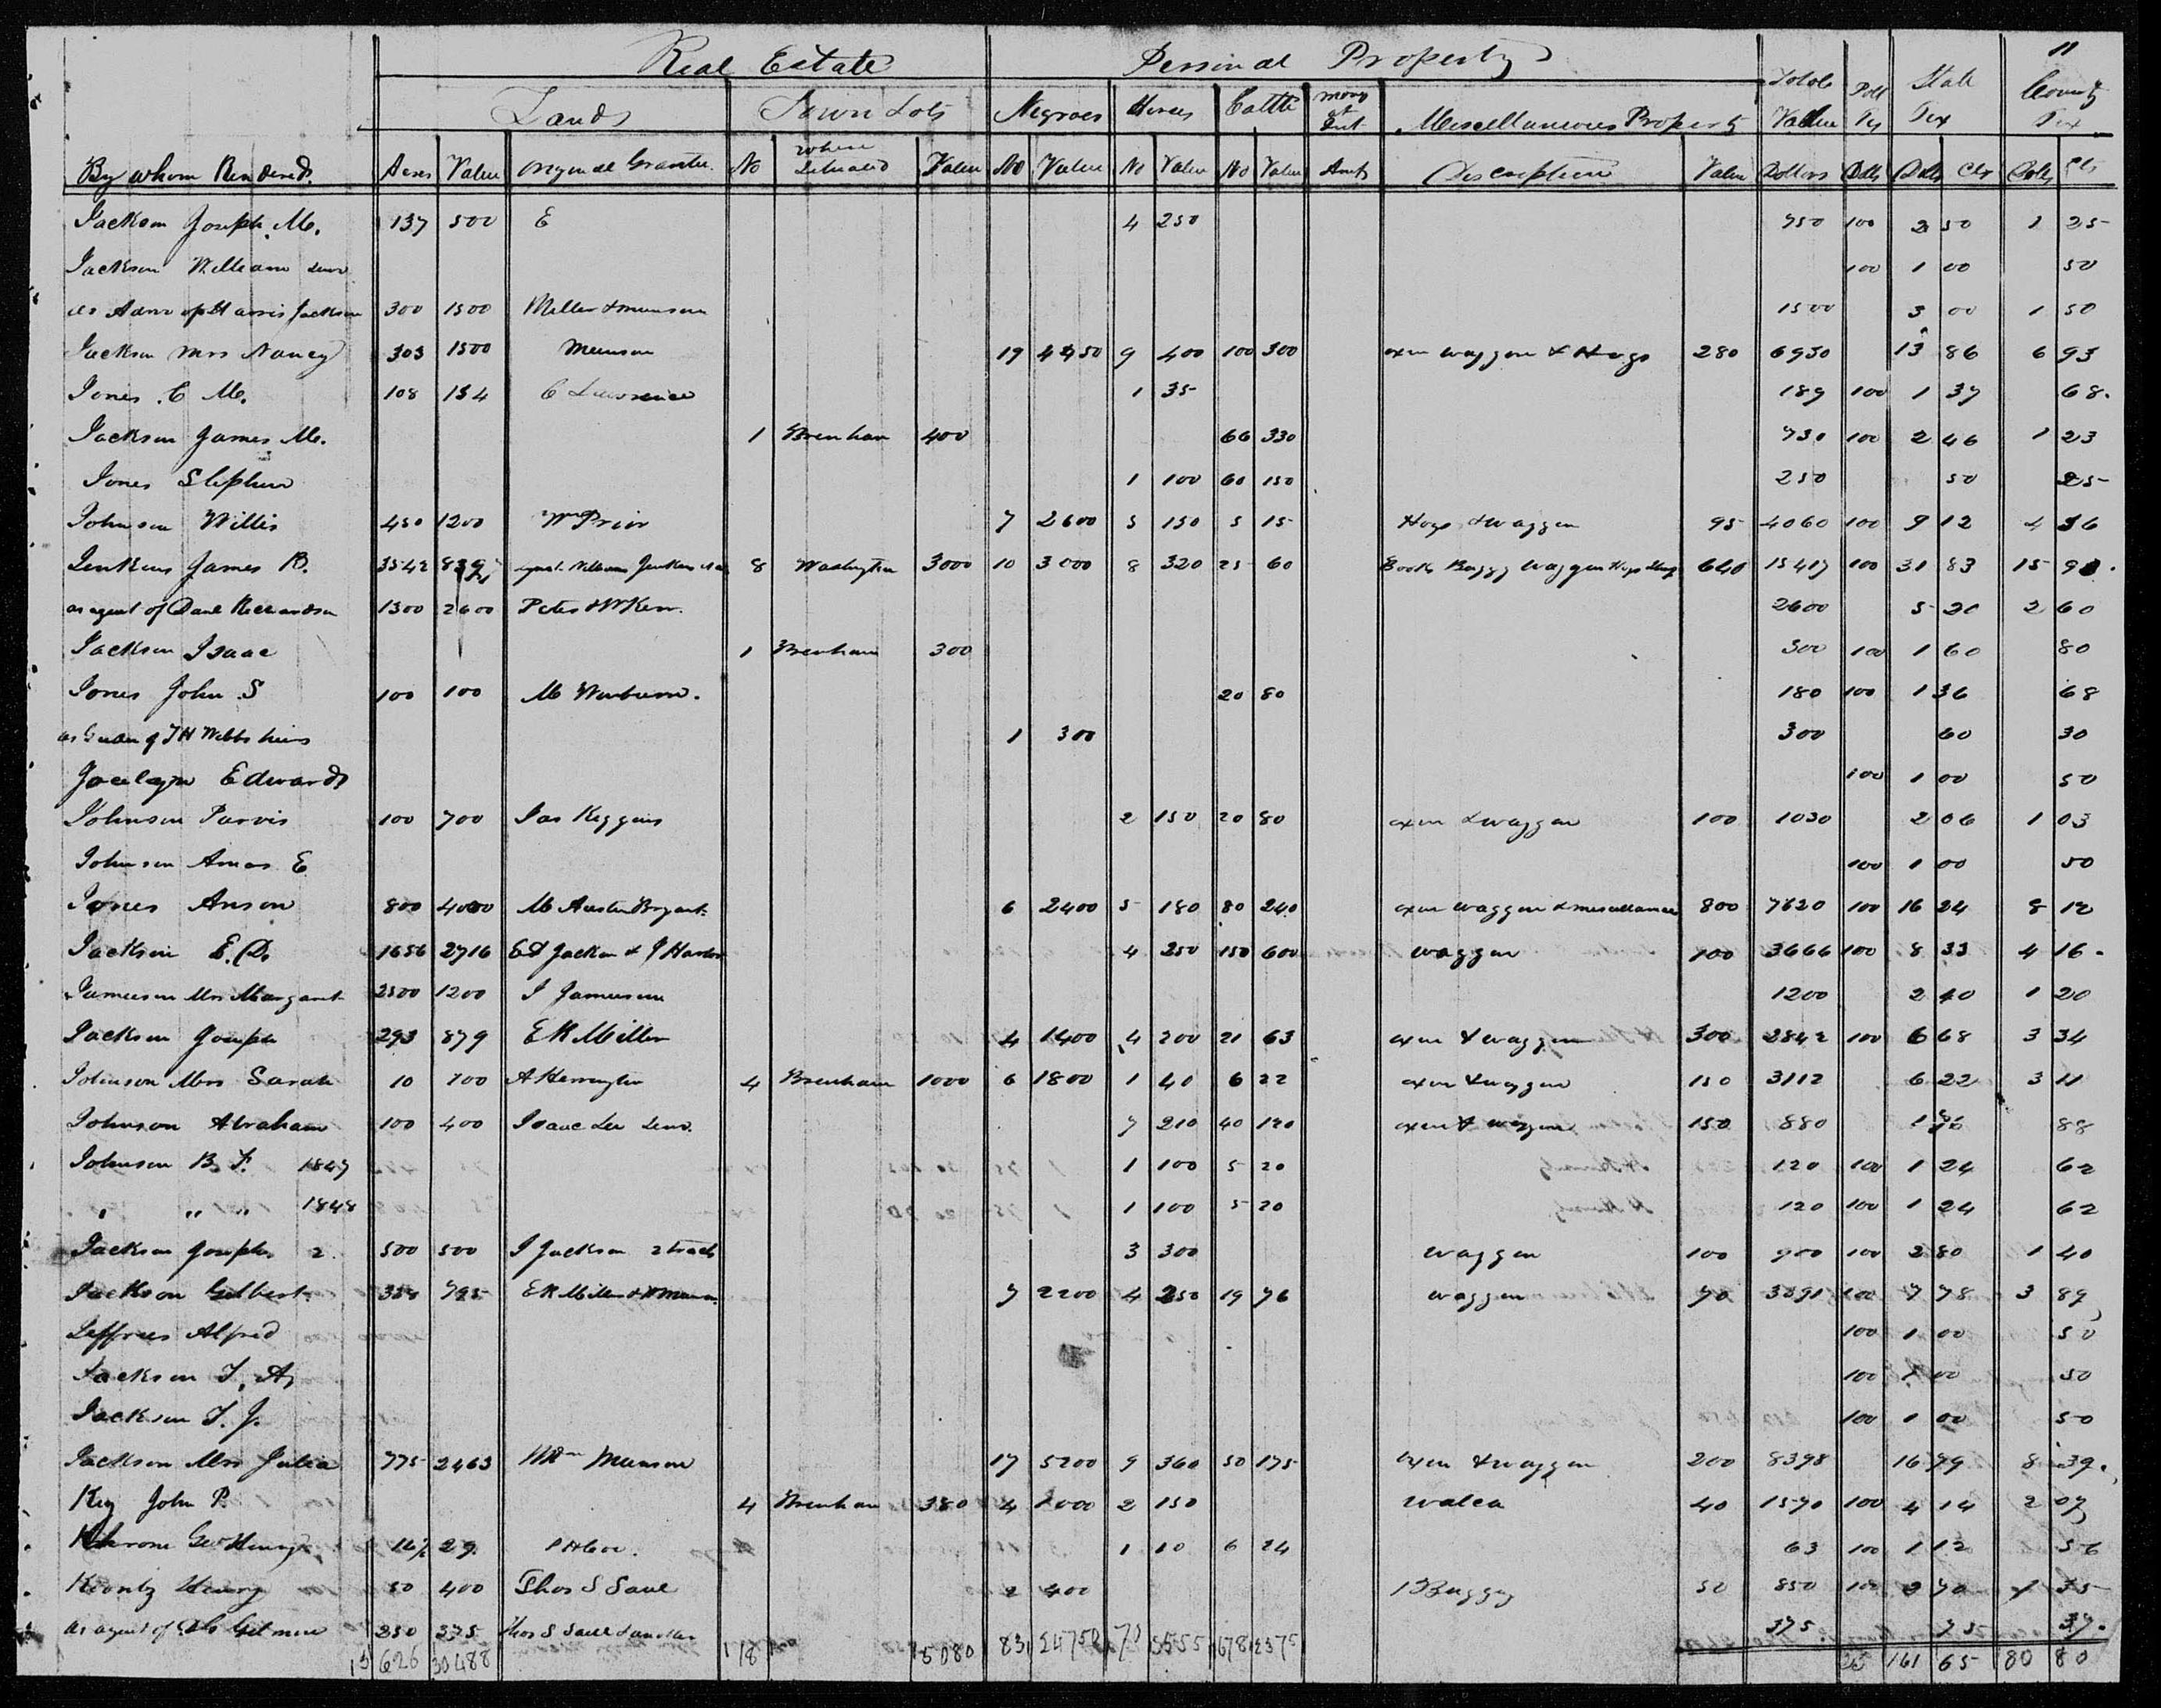 11
Real Estate Personal Property
Lands Town Lots Negroes Horses Cattle Mony at Int. Miscellaneous Property Totale Value Poll Tx State Tex County Tex
By whom Rendered. Acres Value Original Grantee No where Situated Value No Value No Value No Value Amt Discription Value Dollars Dolls Dolls Cts Dolls Cts
Jackson Joseph M. 137 500 E 4 250 750 100 2 50 1 25
Jackson William Senr 100 1 00 50
as Admr of Harris Jackson 300 1500 Miller & Munson 1500 3 00 1 50
Jackson Mrs Nancy 303 1500 Munson 19 4450 9 400 100 300 oxen waggon & Hogs 280 6930 13 86 6 93
Jones C M. 108 154 C Lawrence 1 35 189 100 1 37 68.
Jackson James M. 1 Brenham 400 66 330 730 100 2 46 1 23
Jones Stephen 1 100 60 150 250 50 25
Johnson Willis 450 1200 Wm Prior 7 2600 5 150 5 15 Hogs & Waggon 95 4060 100 9 12 4 56
Jenkins James R. 3542 William Jenkins 8 Washington 3000 10 3000 8 320 25 60 Books Buggy Waggon Hogs 640 15417 100 31 83 15 90.
as agent of Richardson 1300 2600 Peter & W Kerr. 2600 5 20 2 60
Jackson Isaac 1 Brenham 300 300 100 1 60 80
Jones John S 100 100 M 20 80 180 100 1 36 68
as Guan of T H Webbs heirs 1 300 300 60 30
Jocelyn Edwards 100 1 00 50
Johnson Parvis 100 700 Jas Keggins 2 150 20 80 oxen & waggon 100 1030 2 06 1 03
Johnson Amos E 100 1 00 50
Jones Anson 800 4000 M Austin Bryant 6 2400 5 180 80 240 oxen waggon & miscellaneous 800 7620 100 16 24 8 12
Jackson E. D. 1656 2716 E D Jackson & J 4 250 150 600 waggon 100 3666 100 8 33 4 16.
Jameson Mrs Margaret 2500 1200 J Jameson 1200 2 40 1 20
Jackson Joseph 293 879 E R Miller 4 1400 4 200 21 63 oxen & waggon 300 2842 100 6 68 3 34
Johnson Mrs Sarah 10 100 A Herrington 4 Brenham 1000 6 1800 1 40 6 22 oxen & waggon 150 3112 6 22 3 11
Johnson Abraham 100 400 Isaac Lee Senr. 7 210 40 120 oxen & waggon 150 880 1 88
Johnson B. F. 1847 1 100 5 20 120 100 1 24 62
" " " 1848 1 100 5 20 120 100 1 24 62
Jackson Joseph 2 500 500 J Jackson 2 tracts 3 300 waggon 100 900 100 2 80 1 40
Jackson Gilbert 795 E R Miller & 7 2200 4 250 19 76 waggon 70 3391 100 7 78 3 89
Jeffries Alfred 100 1 00 50
Jackson T. A. 100 1 00 50
Jackson T. J. 100 1 00 50
Jackson Mrs Julia 775 2463 Wm Munson 17 5200 9 360 50 175 oxen & waggon 200 8398 16 79 8 39.
Key John P. 4 Brenham 380 4 1000 2 150 40 1570 100 4 14 2 07
Geo Henry 29 1 10 6 24 63 100 1 12 56
Koontz Henry 50 400 Thos S Saul 2 400 1 Buggy 50 850 100 2 70 1 35
as agent of Gilmore 250 375 Thos S Saul & another 375. 75 37.
626 30488 18 5080 83 24750 70 3555 678 2375 25 161 65 80 80